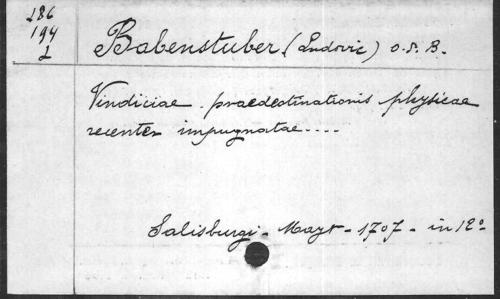 286
194
L
Babenstuber (Ludovic) O.S.B.
Vindiciae praedestinationis physicae
recenter impugnatae....
Salisburgi - Mayr - 1707 - in 12°